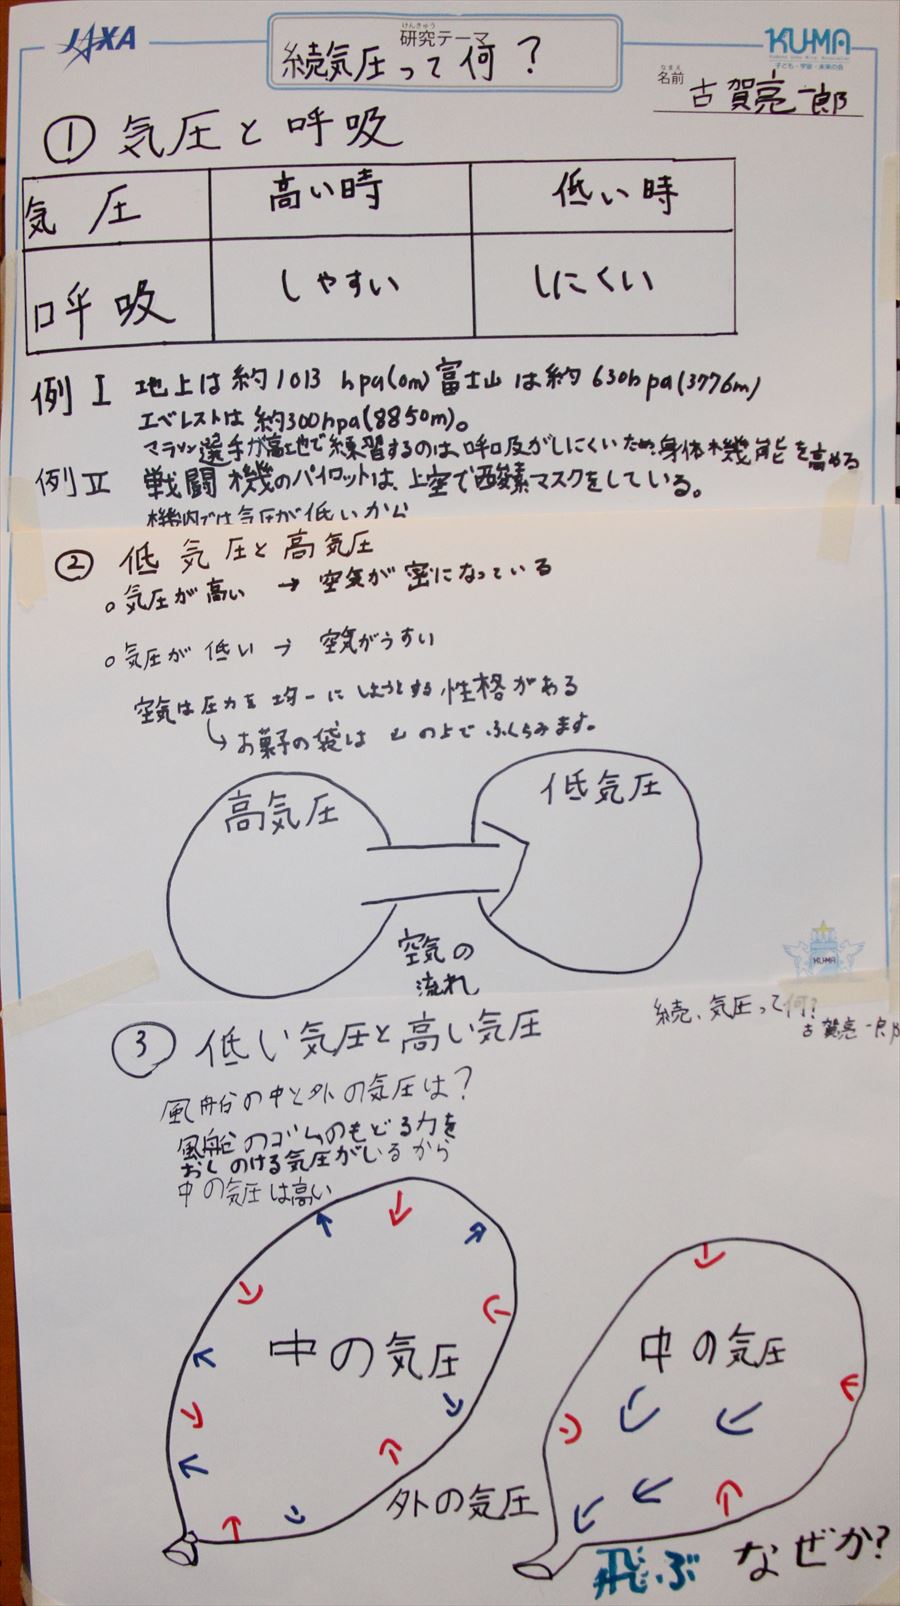 JAXA
けんきゅう
研究テーマ
続気圧って何？
KU-MA
子ども・宇宙・未来の会
なまえ
名前
古賀亮一郎
① 気圧と呼吸
気圧 高い時 低い時
呼吸 しやすい しにくい
例Ⅰ 地上は約1013 hpa(0m)富士山は約630hpa(3776m)
エベレストは約300hpa(8850m)。
マラソン選手が高地で練習するのは、呼吸がしにくいため、身体機能を高める
例Ⅱ 戦闘機のパイロットは、上空で酸素マスクをしている。
機内では気圧が低いから
② 低気圧と高気圧
○気圧が高い → 空気が密になっている
○気圧が低い → 空気がうすい
空気は圧力を均一にしようとする性格がある
↳お菓子の袋は の上でふくらみます。
高気圧 低気圧
空気の
流れ
KU-MA
続、気圧って何？
古賀亮一郎
③ 低い気圧と高い気圧
風船の中と外の気圧は？
風船のゴムのもどる力を
おしのける気圧がいるから
中の気圧は高い
中の気圧 中の気圧
外の気圧
飛ぶ なぜか？